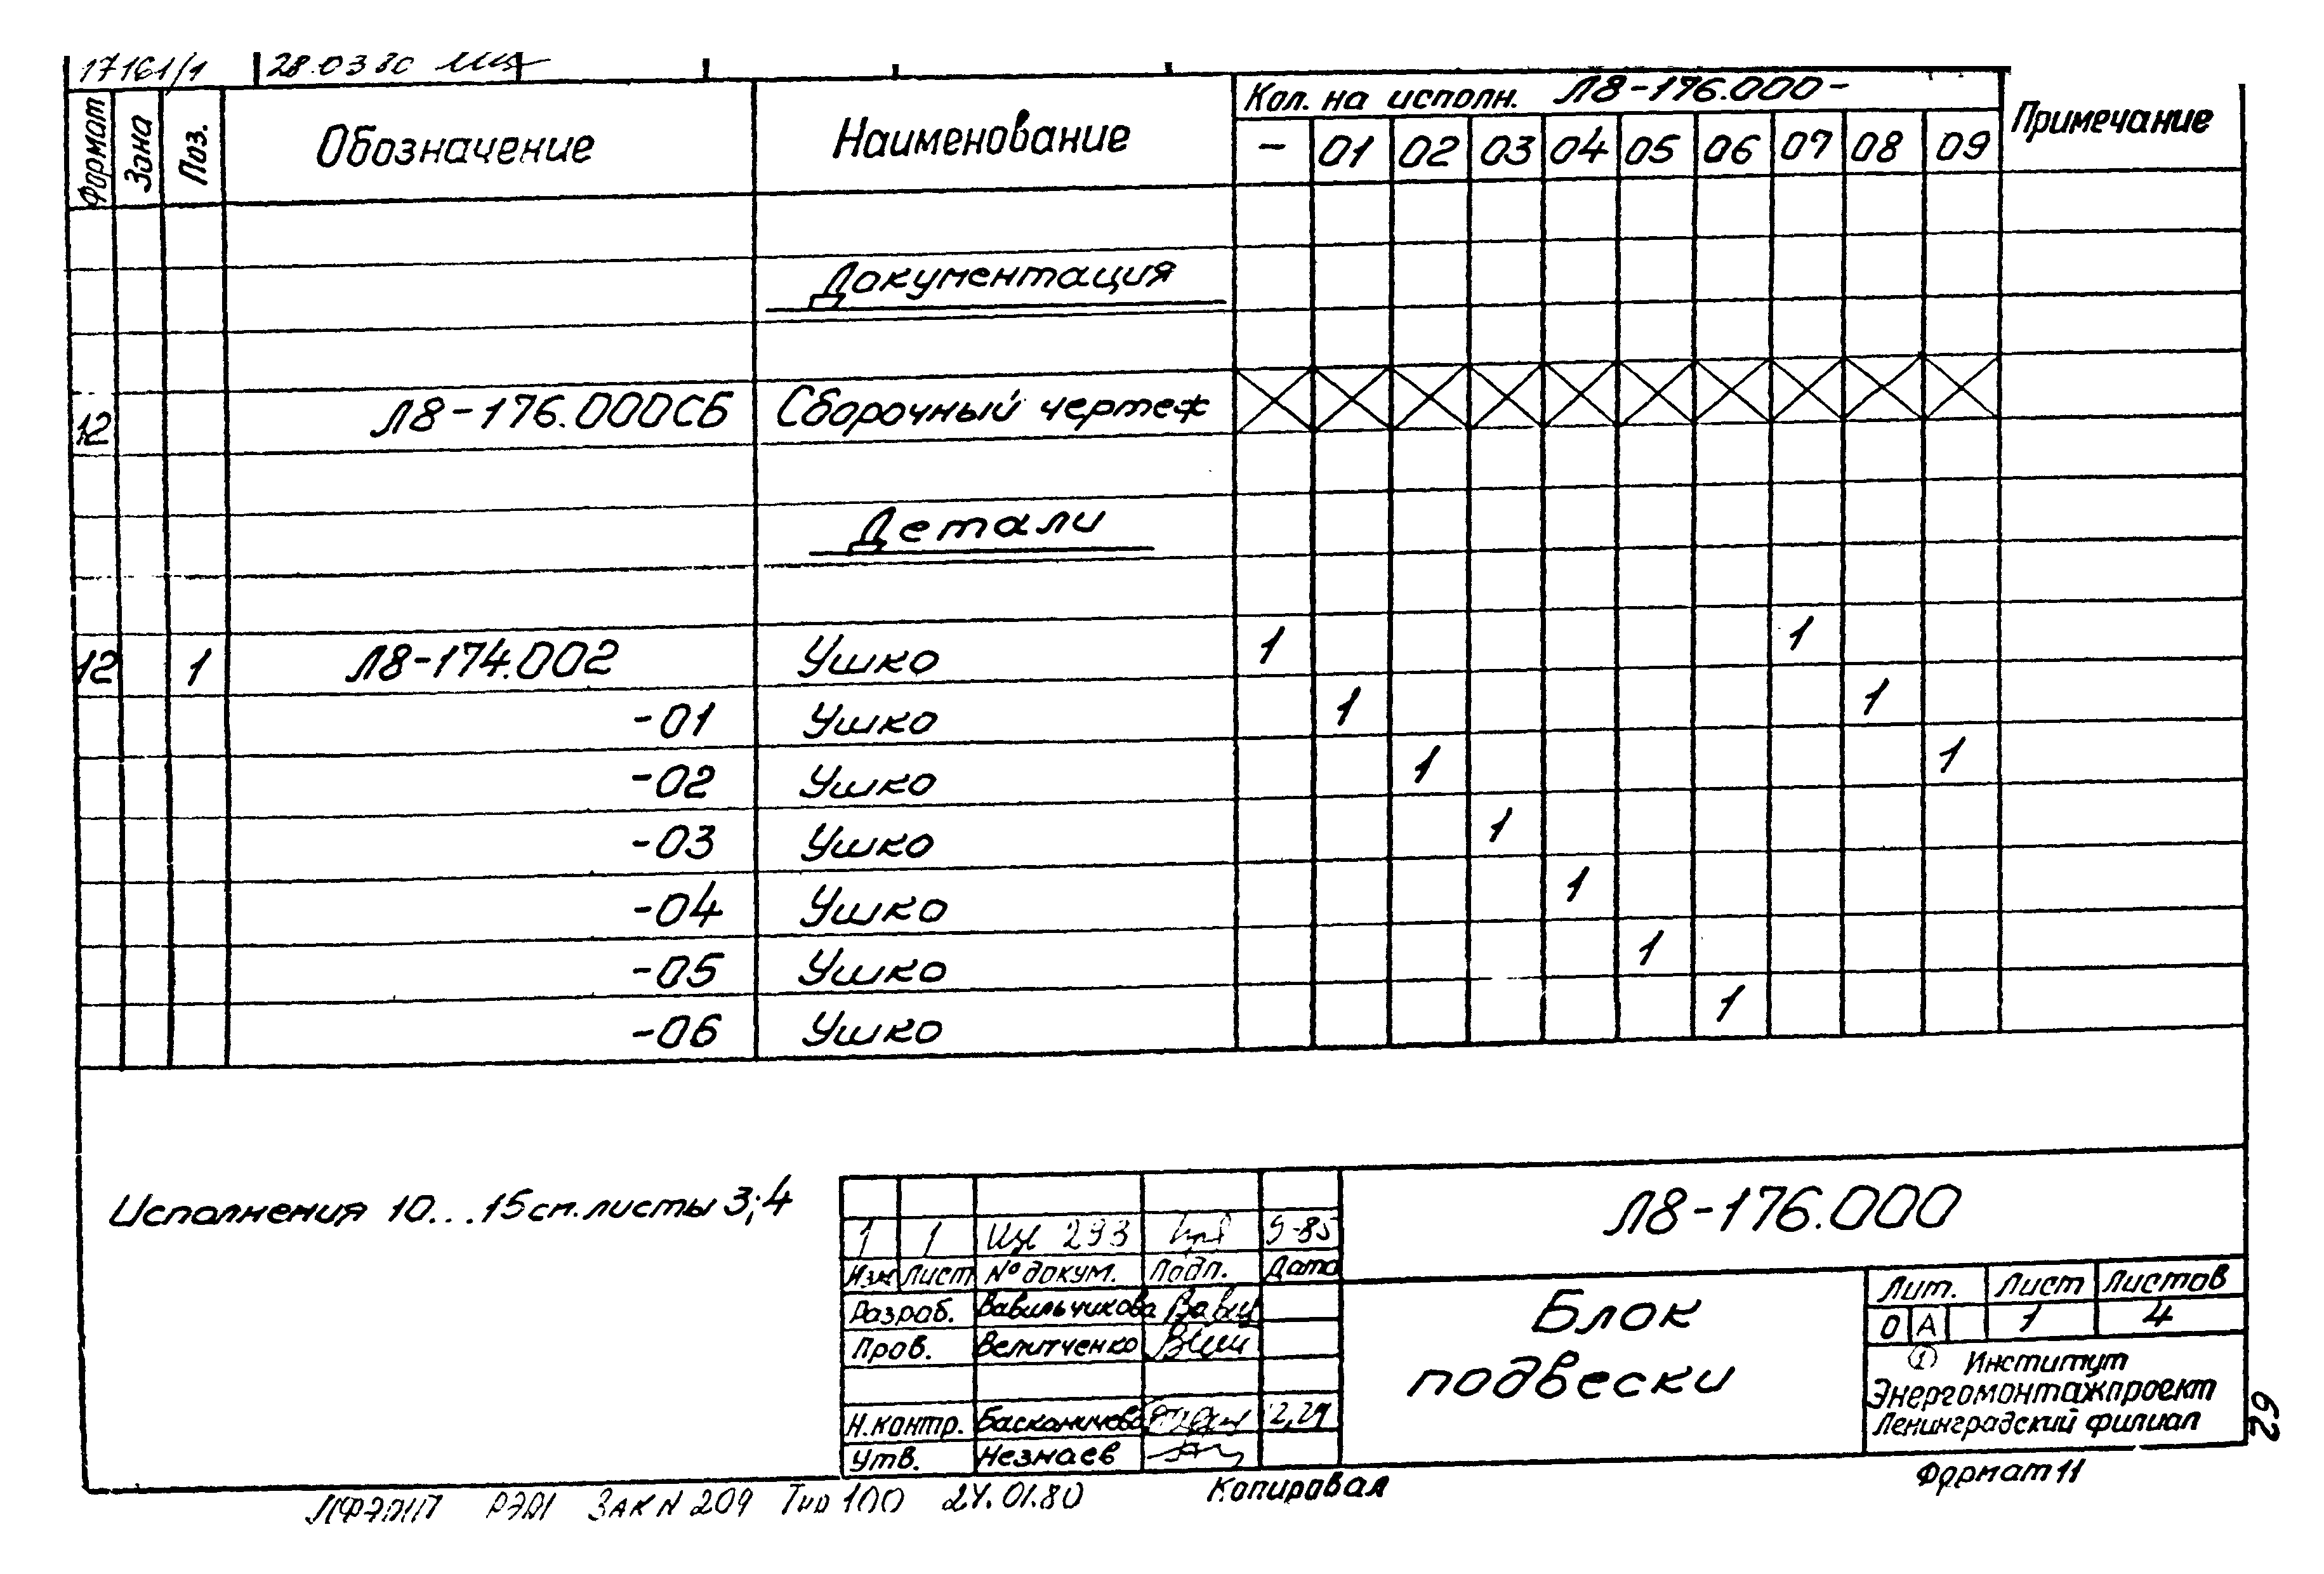 17161/1 28.03.80
Формат Зона Поз. Обозначение Наименование Кол. на исполн. Л8-176.000- Примечание
- 01 02 03 04 05 06 07 08 09
Документация
12 Л8-176.000СБ Сборочный чертеж
Детали
12 1 Л8-174.002 Ушко 1 1
-01 Ушко 1 1
-02 Ушко 1 1
-03 Ушко 1
-04 Ушко 1
-05 Ушко 1
-06 Ушко 1
Исполнения 10...15 сп. листы 3;4
Л8-176.000
1 1 293 9-85
Изм Лист № докум. Подп. Дата
Разраб. Вавильчикова
Пров. Велитченко
Н.контр.
Утв. Незнаев
Блок
подвески
Лит. Лист Листов
О А 1 4
1 Институт
Энергомонтажпроект
Ленинградский филиал
62
ЗАК N 209 Тир 100 24.01.80 Копировал Формат 11